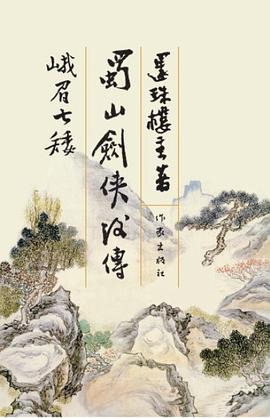 還珠樓主著
作家出版社
蜀山劍俠後傳
峨眉七矮